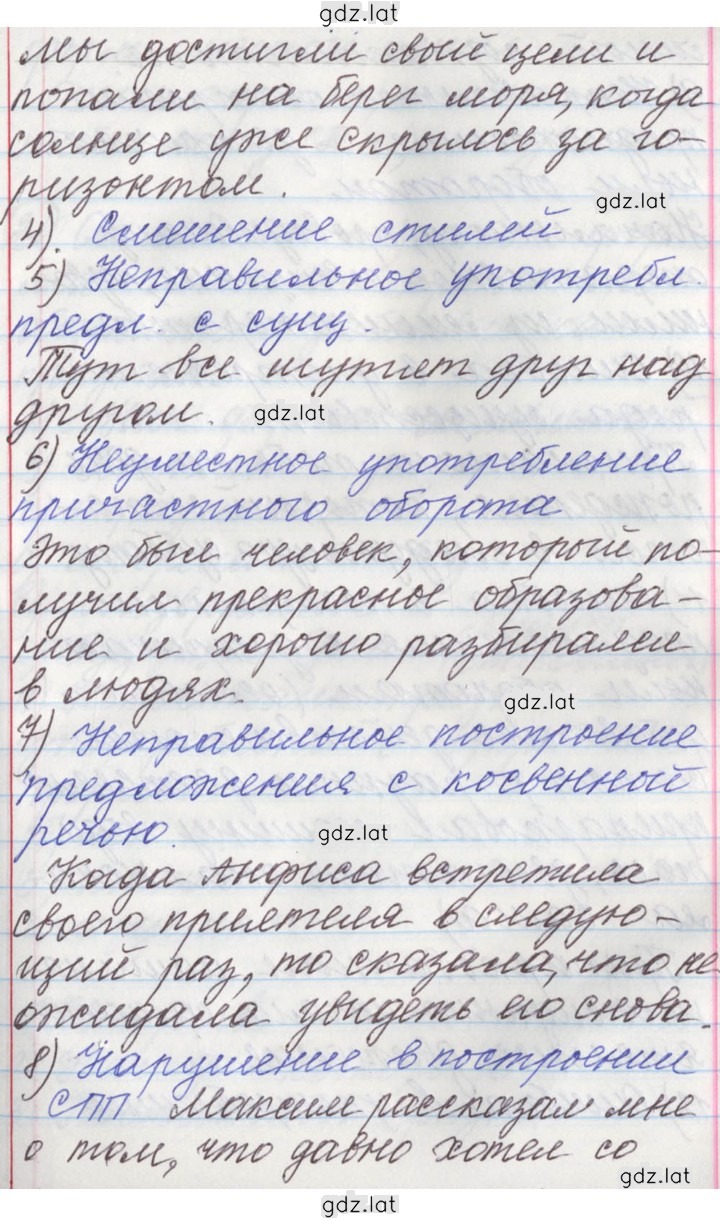 gdz.lat
мы достигли свый цели и
попали на берег моря, когда
солнце уже скрылось за го-
ризонтом.
gdz.lat
4). Смешение стилей
5) Неправильное употребл.
предл. с сущ.
Тут все шутят друг над
другом.
gdz.lat
6) Неуместное употребление
причастного оборота
Это был человек, который по-
лучил прекрасное образова-
ние и хорошо разбирался
в людях.
gdz.lat
7) Неправильное построение
предложения с косвенной
речью.
gdz.lat
Когда Анфиса встретила
своего приятеля в следую-
щий раз, то сказала, что не
ожидала увидеть его снова.
8) Нарушение в построении
СПП Максим рассказал мне
о том, что давно хотел со
gdz.lat
gdz.lat